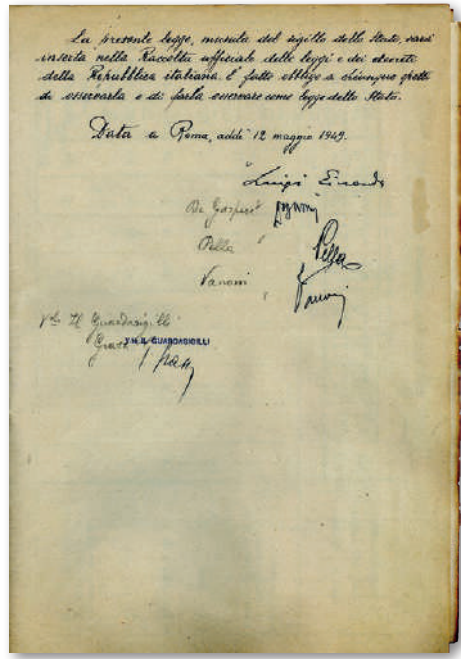 La presente legge, munita del sigillo dello Stato, sarà
inserita nella Raccolta ufficiale delle leggi e dei decreti
della Repubblica italiana. È fatto obbligo a chiunque spetti
di osservarla e di farla osservare come legge dello Stato.
Data a Roma, addì 12 maggio 1949.
Luigi Einaudi
De Gasperi
Pella Pella
Vanoni Vanoni
Vto Il Guardasigilli
Grassi V.to IL GUARDASIGILLI